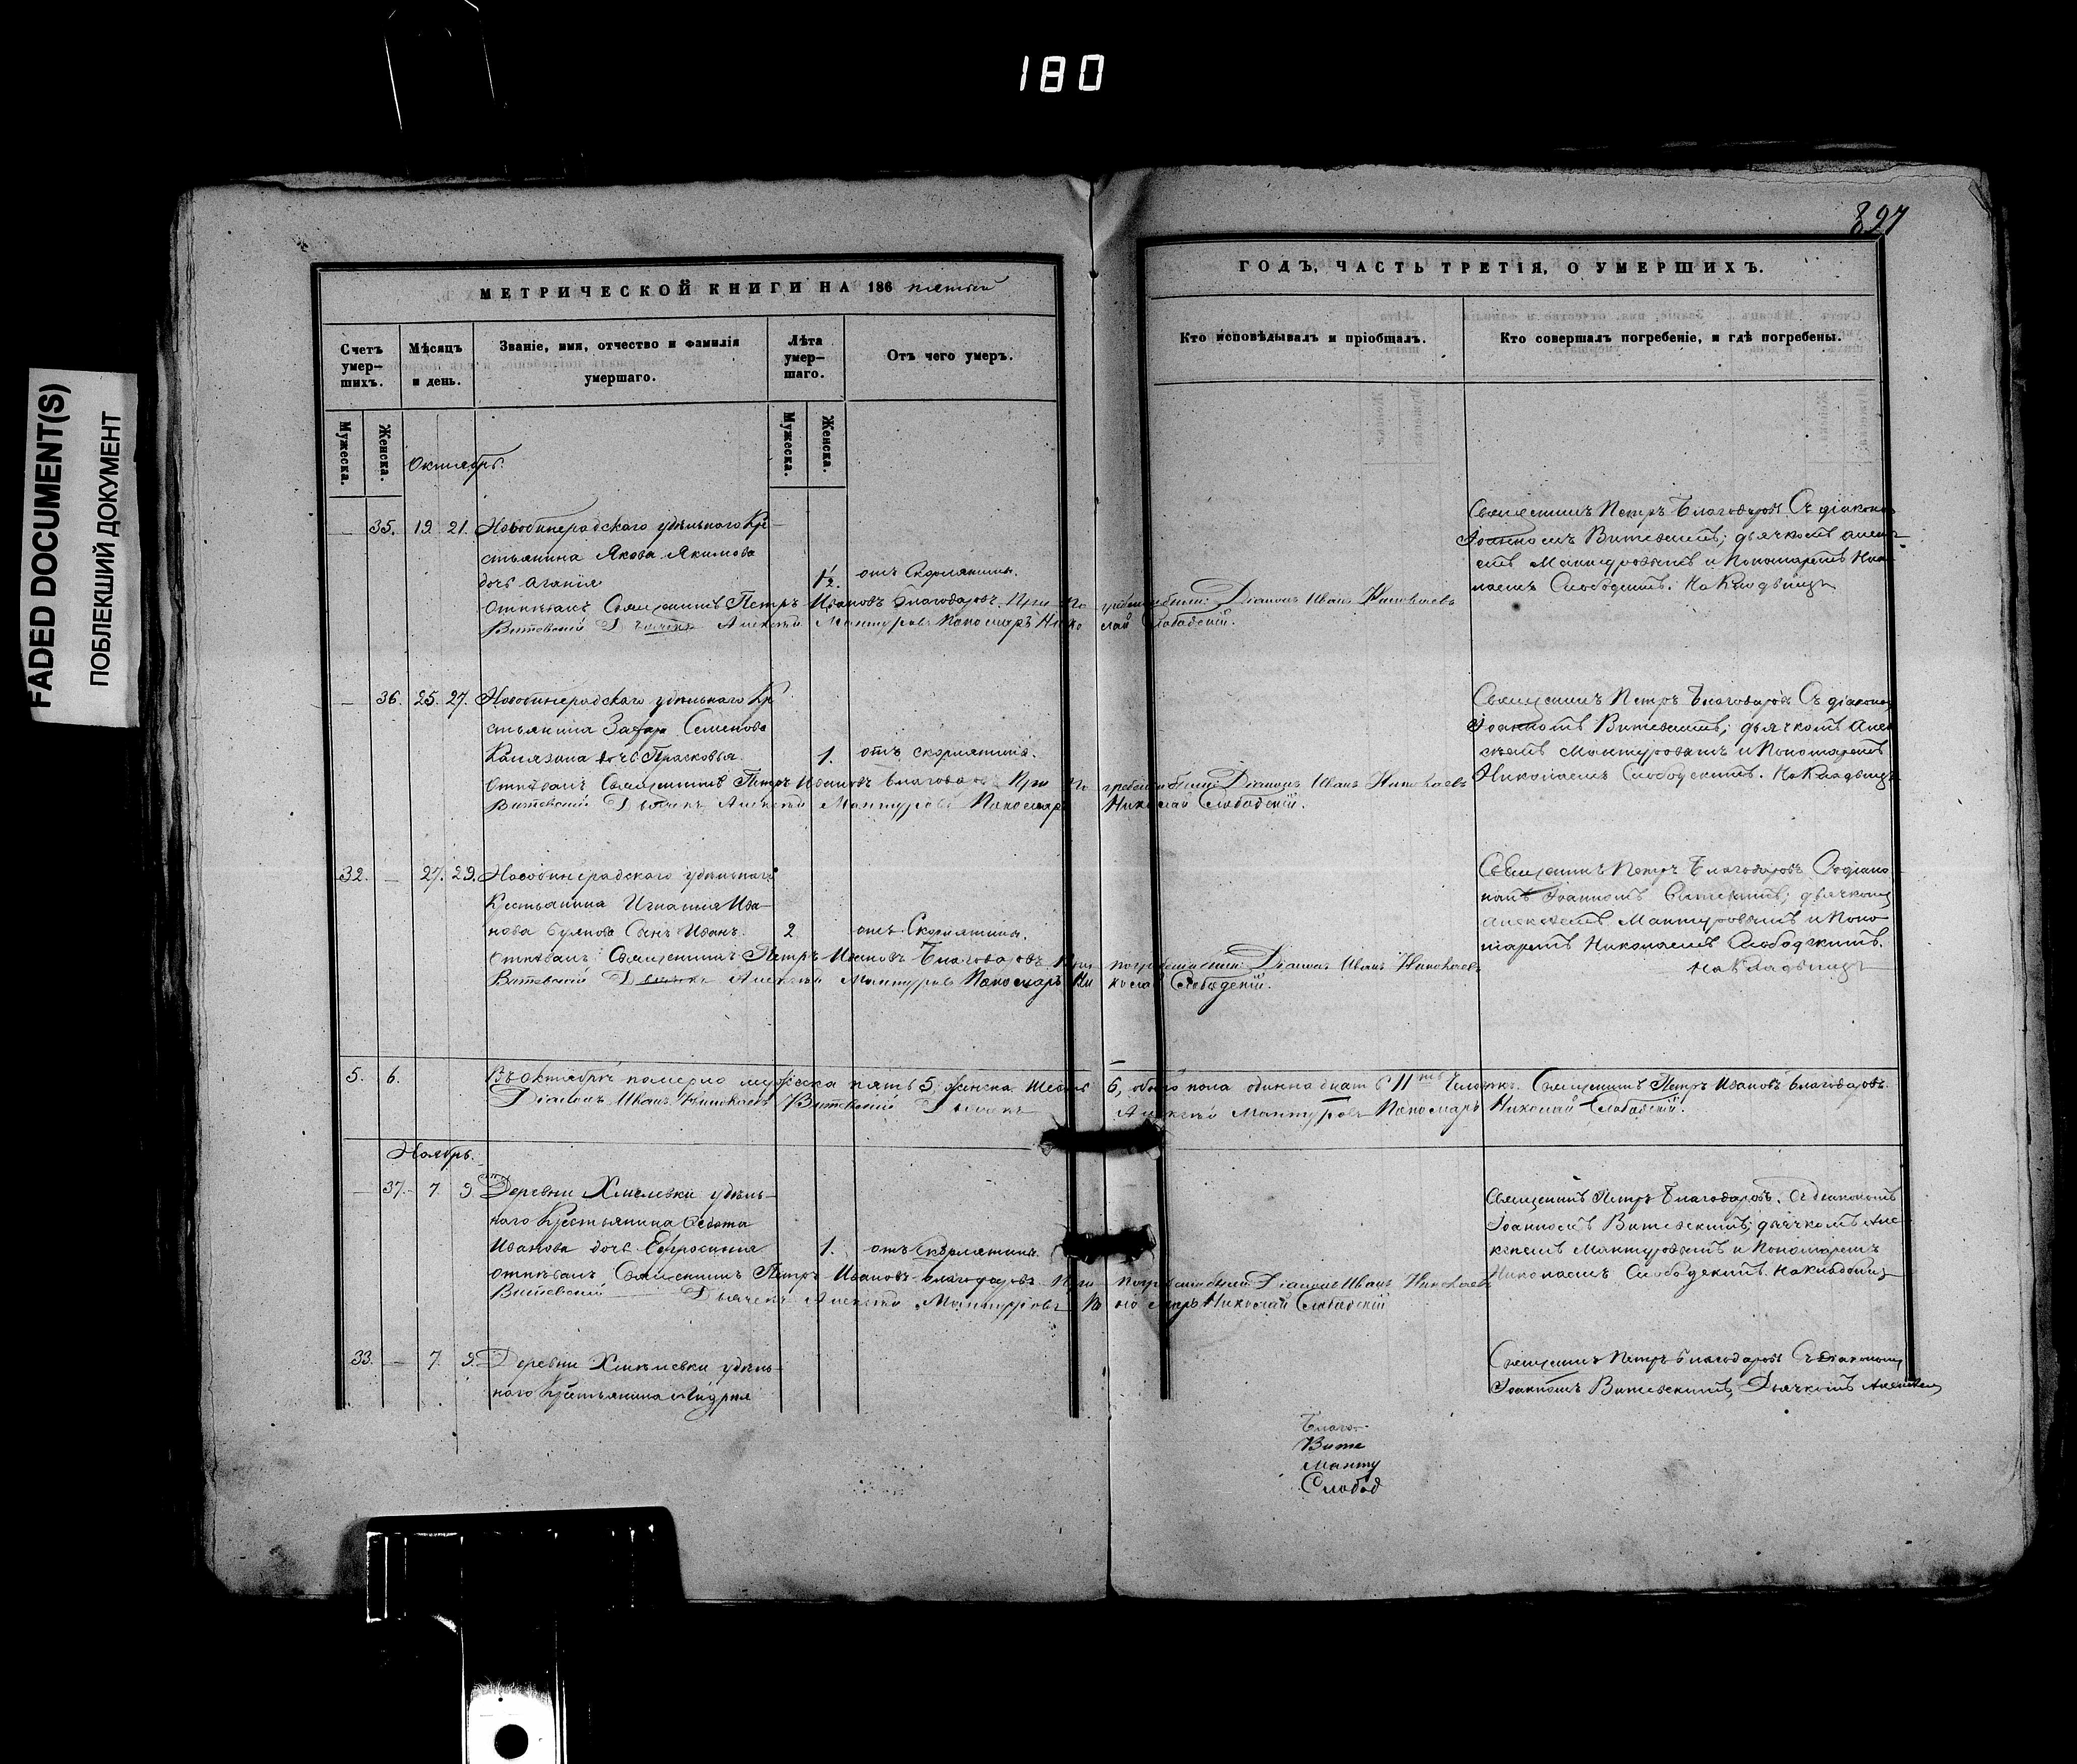 180
FADED DOCUMENT(S)
ПОБЛЕКШИЙ ДОКУМЕНТ
897
МЕТРИЧЕСКОЙ КНИГИ НА 186 пятый
ГОДЪ, ЧАСТЬ ТРЕТІЯ, О УМЕРШИХЪ.
Счетъ умер-шихъ.
Мужеска.
Женска.
Мѣсяцъ и день.
Званіе, имя, отчество и фамилія умершаго.
Лѣта умер-шаго.
Мужеска.
Женска.
Отъ чего умеръ.
Кто исповѣдывалъ и пріобщалъ.
Кто совершалъ погребеніе, и гдѣ погребены.
Октябрь.
— 35. 19 21. удѣльнаго Кре
стьянина Якова Якимова
дочь 1/2. отъ Скорлятины.
Отпѣвалъ Священникъ Петръ Ивановъ Благодаровъ. При погребеніи были: Діаконъ Иванъ Николаевъ
Витевскій Дьячекъ Алексѣй Мантуровъ Пономарь Николай Слободскій.
Священникъ Петръ Благодаровъ. Съ діакономъ
Іоанномъ Витевскимъ; дьячкомъ Алек
сѣемъ Мантуровымъ и Пономаремъ Нико
лаемъ Слободскимъ. На Кладбищѣ
— 36. 25. 27. удѣльнаго Кре
стьянина Захара Семенова
дочь Прасковья. 1. отъ скорлятины.
Отпѣвалъ Священникъ Петръ Ивановъ Благодаровъ При погребеніи были: Діаконъ Иванъ Николаевъ
Витевскій Дьячекъ Алексѣй Мантуровъ Пономарь Николай Слободскій.
Священникъ Петръ Благодаровъ Съ діакономъ
Іоанномъ Витевскимъ; дьячкомъ Алек
сѣемъ Мантуровымъ и Пономаремъ
Николаемъ Слободскимъ. На Кладбищѣ
32. — 27. 29. удѣльнаго
Крестьянина Игнатія Ива-
нова Сынъ Иванъ. 2. отъ Скорлятины.
Отпѣвалъ Священникъ Петръ Ивановъ Благодаровъ При погребеніи были: Діаконъ Иванъ Николаевъ
Витевскій Дьячекъ Алексѣй Мантуровъ Пономарь Николай Слободскій.
Священникъ Петръ Благодаровъ Со діако
номъ Іоанномъ Витевскимъ; дьячкомъ
Алексѣемъ Мантуровымъ и Поно
маремъ Николаемъ Слободскимъ.
На Кладбищѣ
5. 6. Въ Октябрѣ померло мужеска пять 5, женска шесть 6, обоего пола одиннадцать 11ть Священникъ Петръ Ивановъ Благодаровъ.
Діаконъ Иванъ Николаевъ Витевскій Дьячекъ Алексѣй Мантуровъ Пономарь Николай Слободскій.
Ноябрь.
— 37. 7. 9. Деревни Хмелевки удѣль-
наго Крестьянина Федота
Иванова дочь Ефросинія 1. отъ скорлятины.
Отпѣвалъ Священникъ Петръ Ивановъ Благодаровъ При погребеніи были Діаконъ Иванъ Николаевъ
Витевскій Дьячекъ Алексѣй Мантуровъ Пономарь Николай Слободскій
Священникъ Петръ Благодаровъ. Съ діакономъ
Іоанномъ Витевскимъ; дьячкомъ Але
ксѣемъ Мантуровымъ и Пономаремъ
Николаемъ Слободскимъ. на кладбищѣ
33. — 7. 9. Деревни Хмелевки удѣль-
наго Крестьянина Андрея
Священникъ Петръ Благодаровъ Съ діакономъ
Іоанномъ Витевскимъ, Дьячкомъ Алексѣем
Благо-
Вите
Манту
Слобод